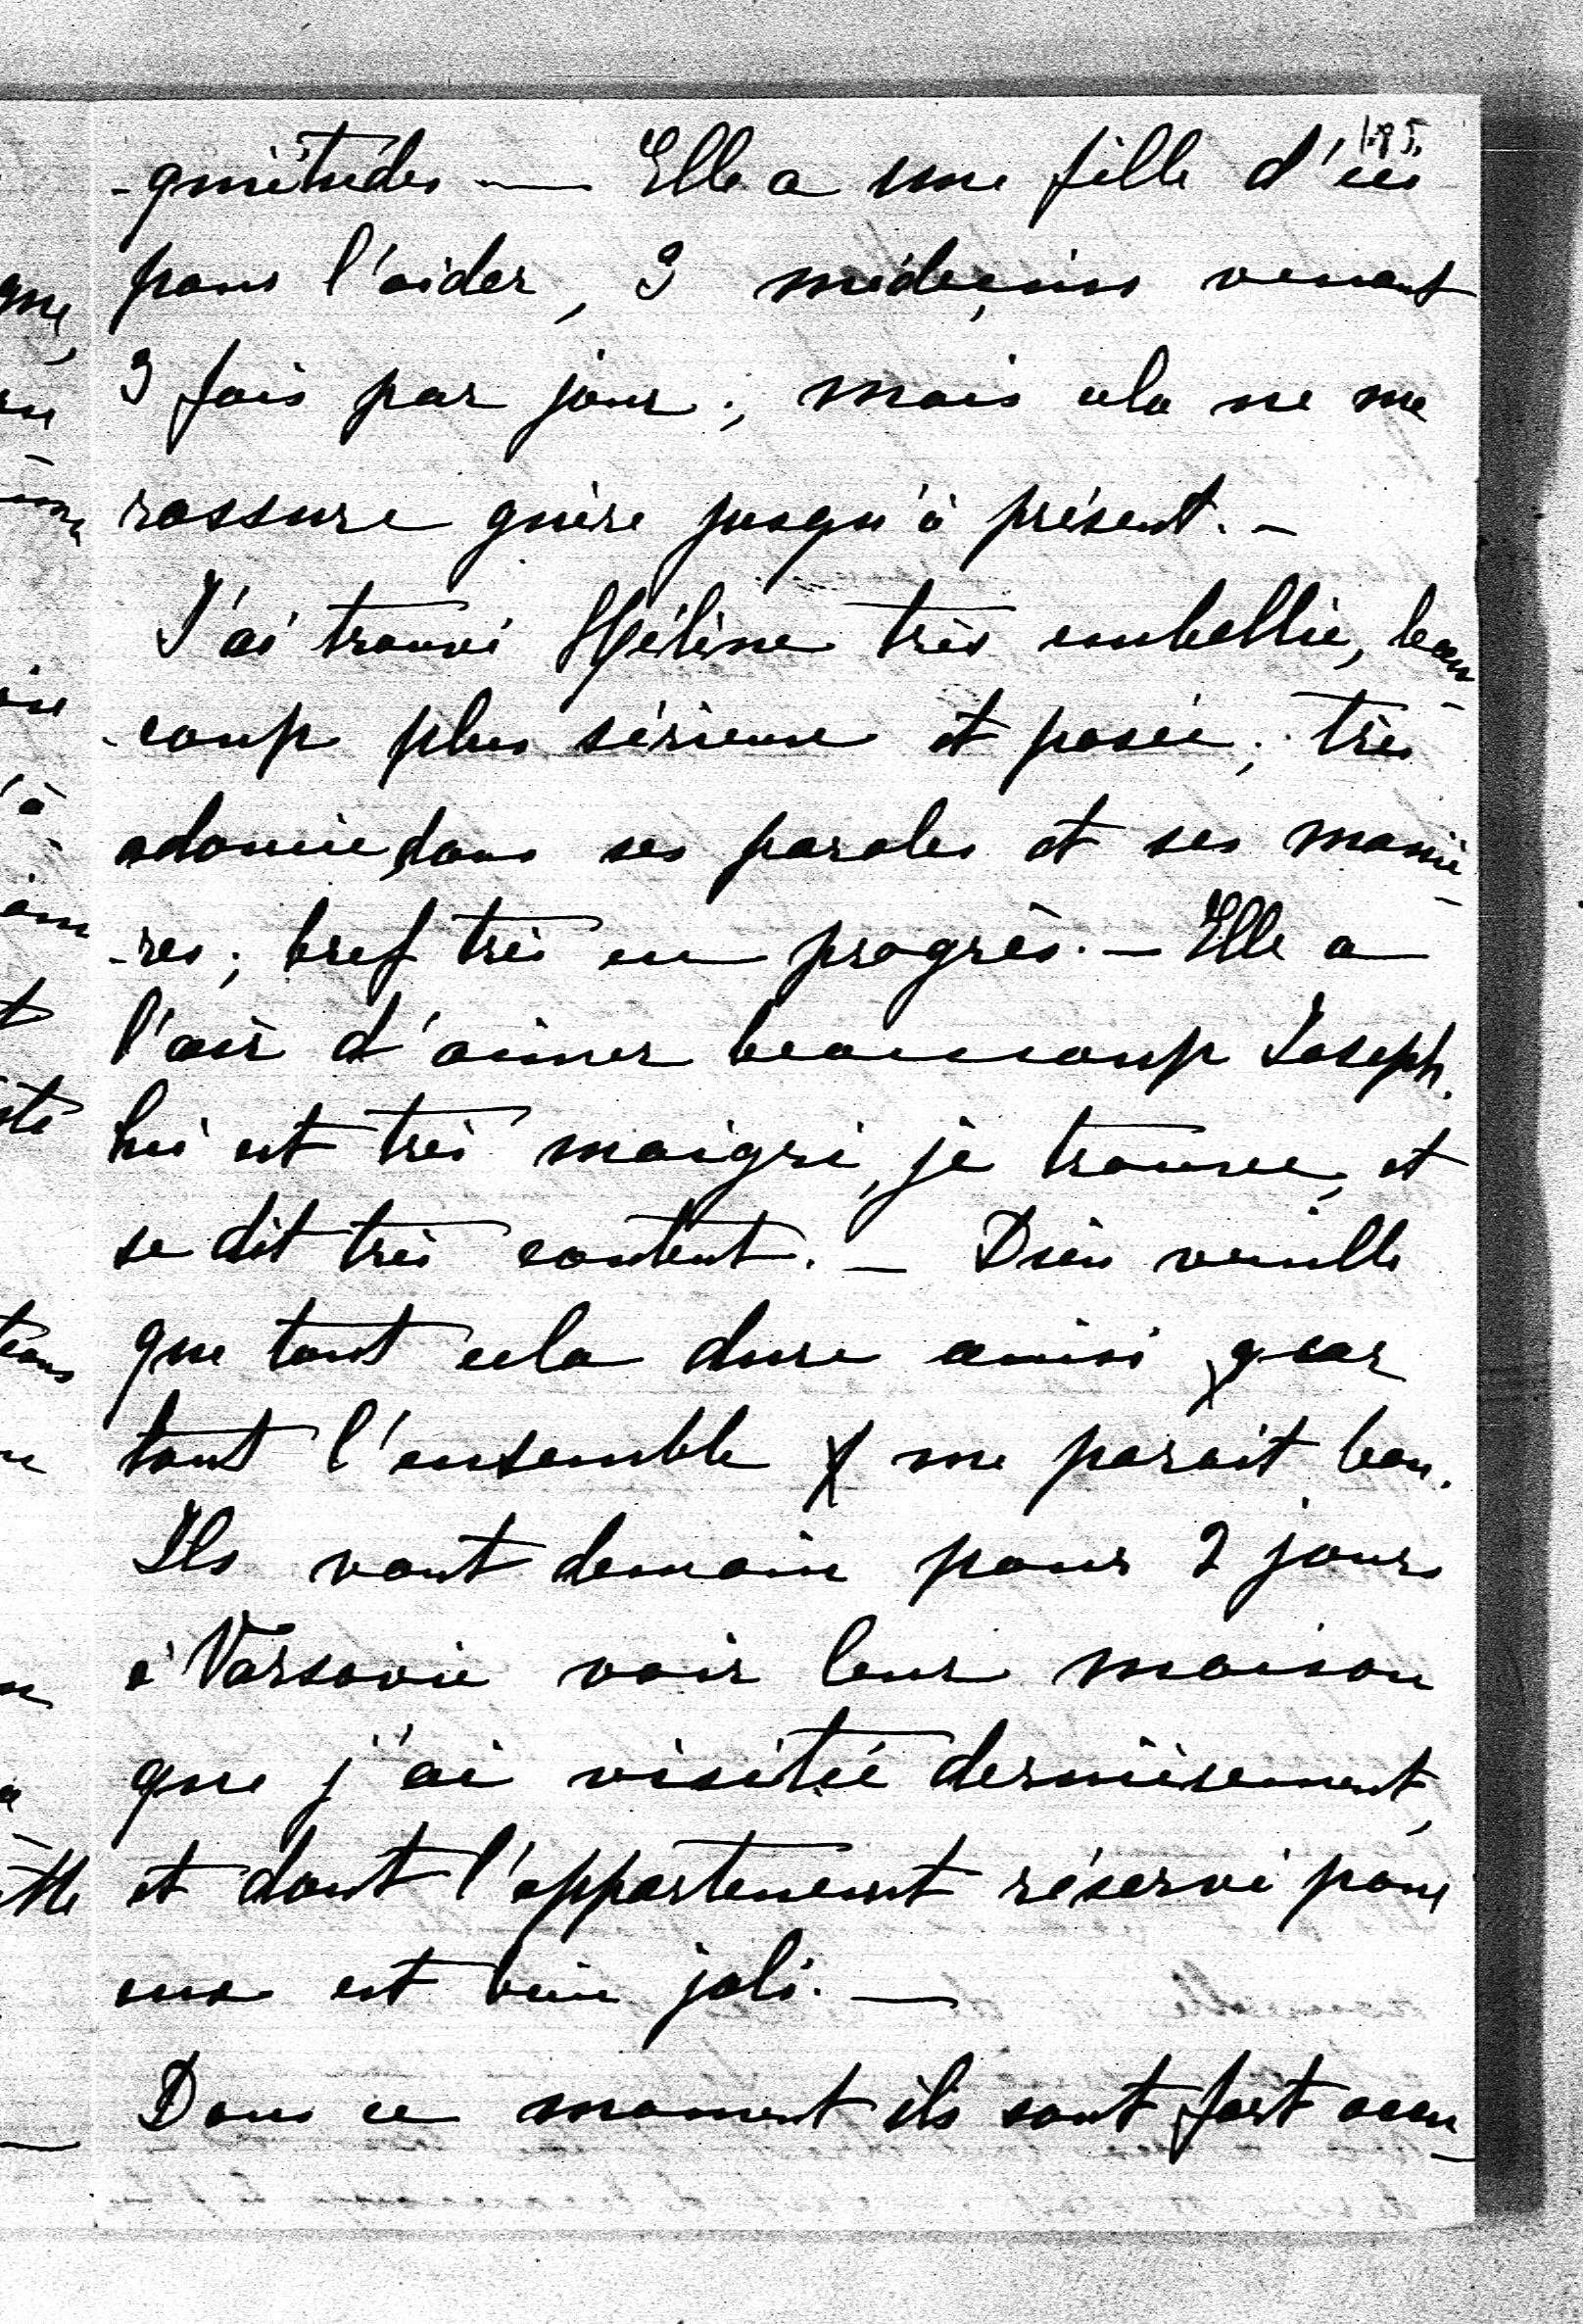 195.
-quiétudes — Elle a une fille d'ici
pour l'aider, 3 médeçins venant
3 fois par jour; mais cela ne me
rassure guère jusqu'à présent. —
J'ai trouvé Hélène très embellie, beau-
-coup plus sérieuse et posée; très
adoucie, dans ses paroles et ses maniè-
-res; bref très en progrès. — Elle a
l'air d'aimer beaucoup Joseph.
Lui est très maigri, je trouve, et
se dit très content. — Dieu veuille
que tout cela dure ainsi, car
tout l'ensemble me parait bon.
Ils vont demain pour 2 jours
à Varsovie voir leur maison
que j'ai visitée dernièrement,
et dont l'appartement réservé pour
eux est bien joli. —
Dans ce moment ils sont fort occu-